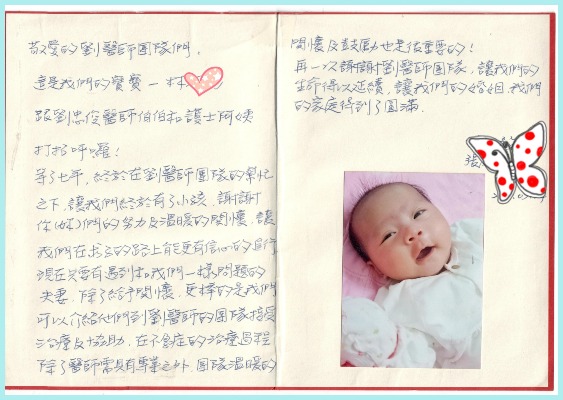 敬愛的劉醫師團隊們,
這是我們的寶寶一林
跟劉忠俊醫師伯伯和護士阿姨
打招呼囉!
等了七年,終於在劉醫師團隊的幫忙
之下,讓我們終於有了小孩,謝謝
你(妳)們的努力及溫暖的關懷,讓
我們在求子的路上能更有信心的自行
現在只要有遇到和我們一樣問題的
夫妻,除了給予關懷,更棒的是我們
可以介紹他們到劉醫師的團隊接受
治療及協助,在不孕症的治療過程
除了醫師需具有專業之外,團隊溫暖的
關懷及鼓勵也是很重要的!
再一次謝謝劉醫師團隊,讓我們的
生命得以延續,讓我們的婚姻,我們
的家庭得到了圓滿.
張